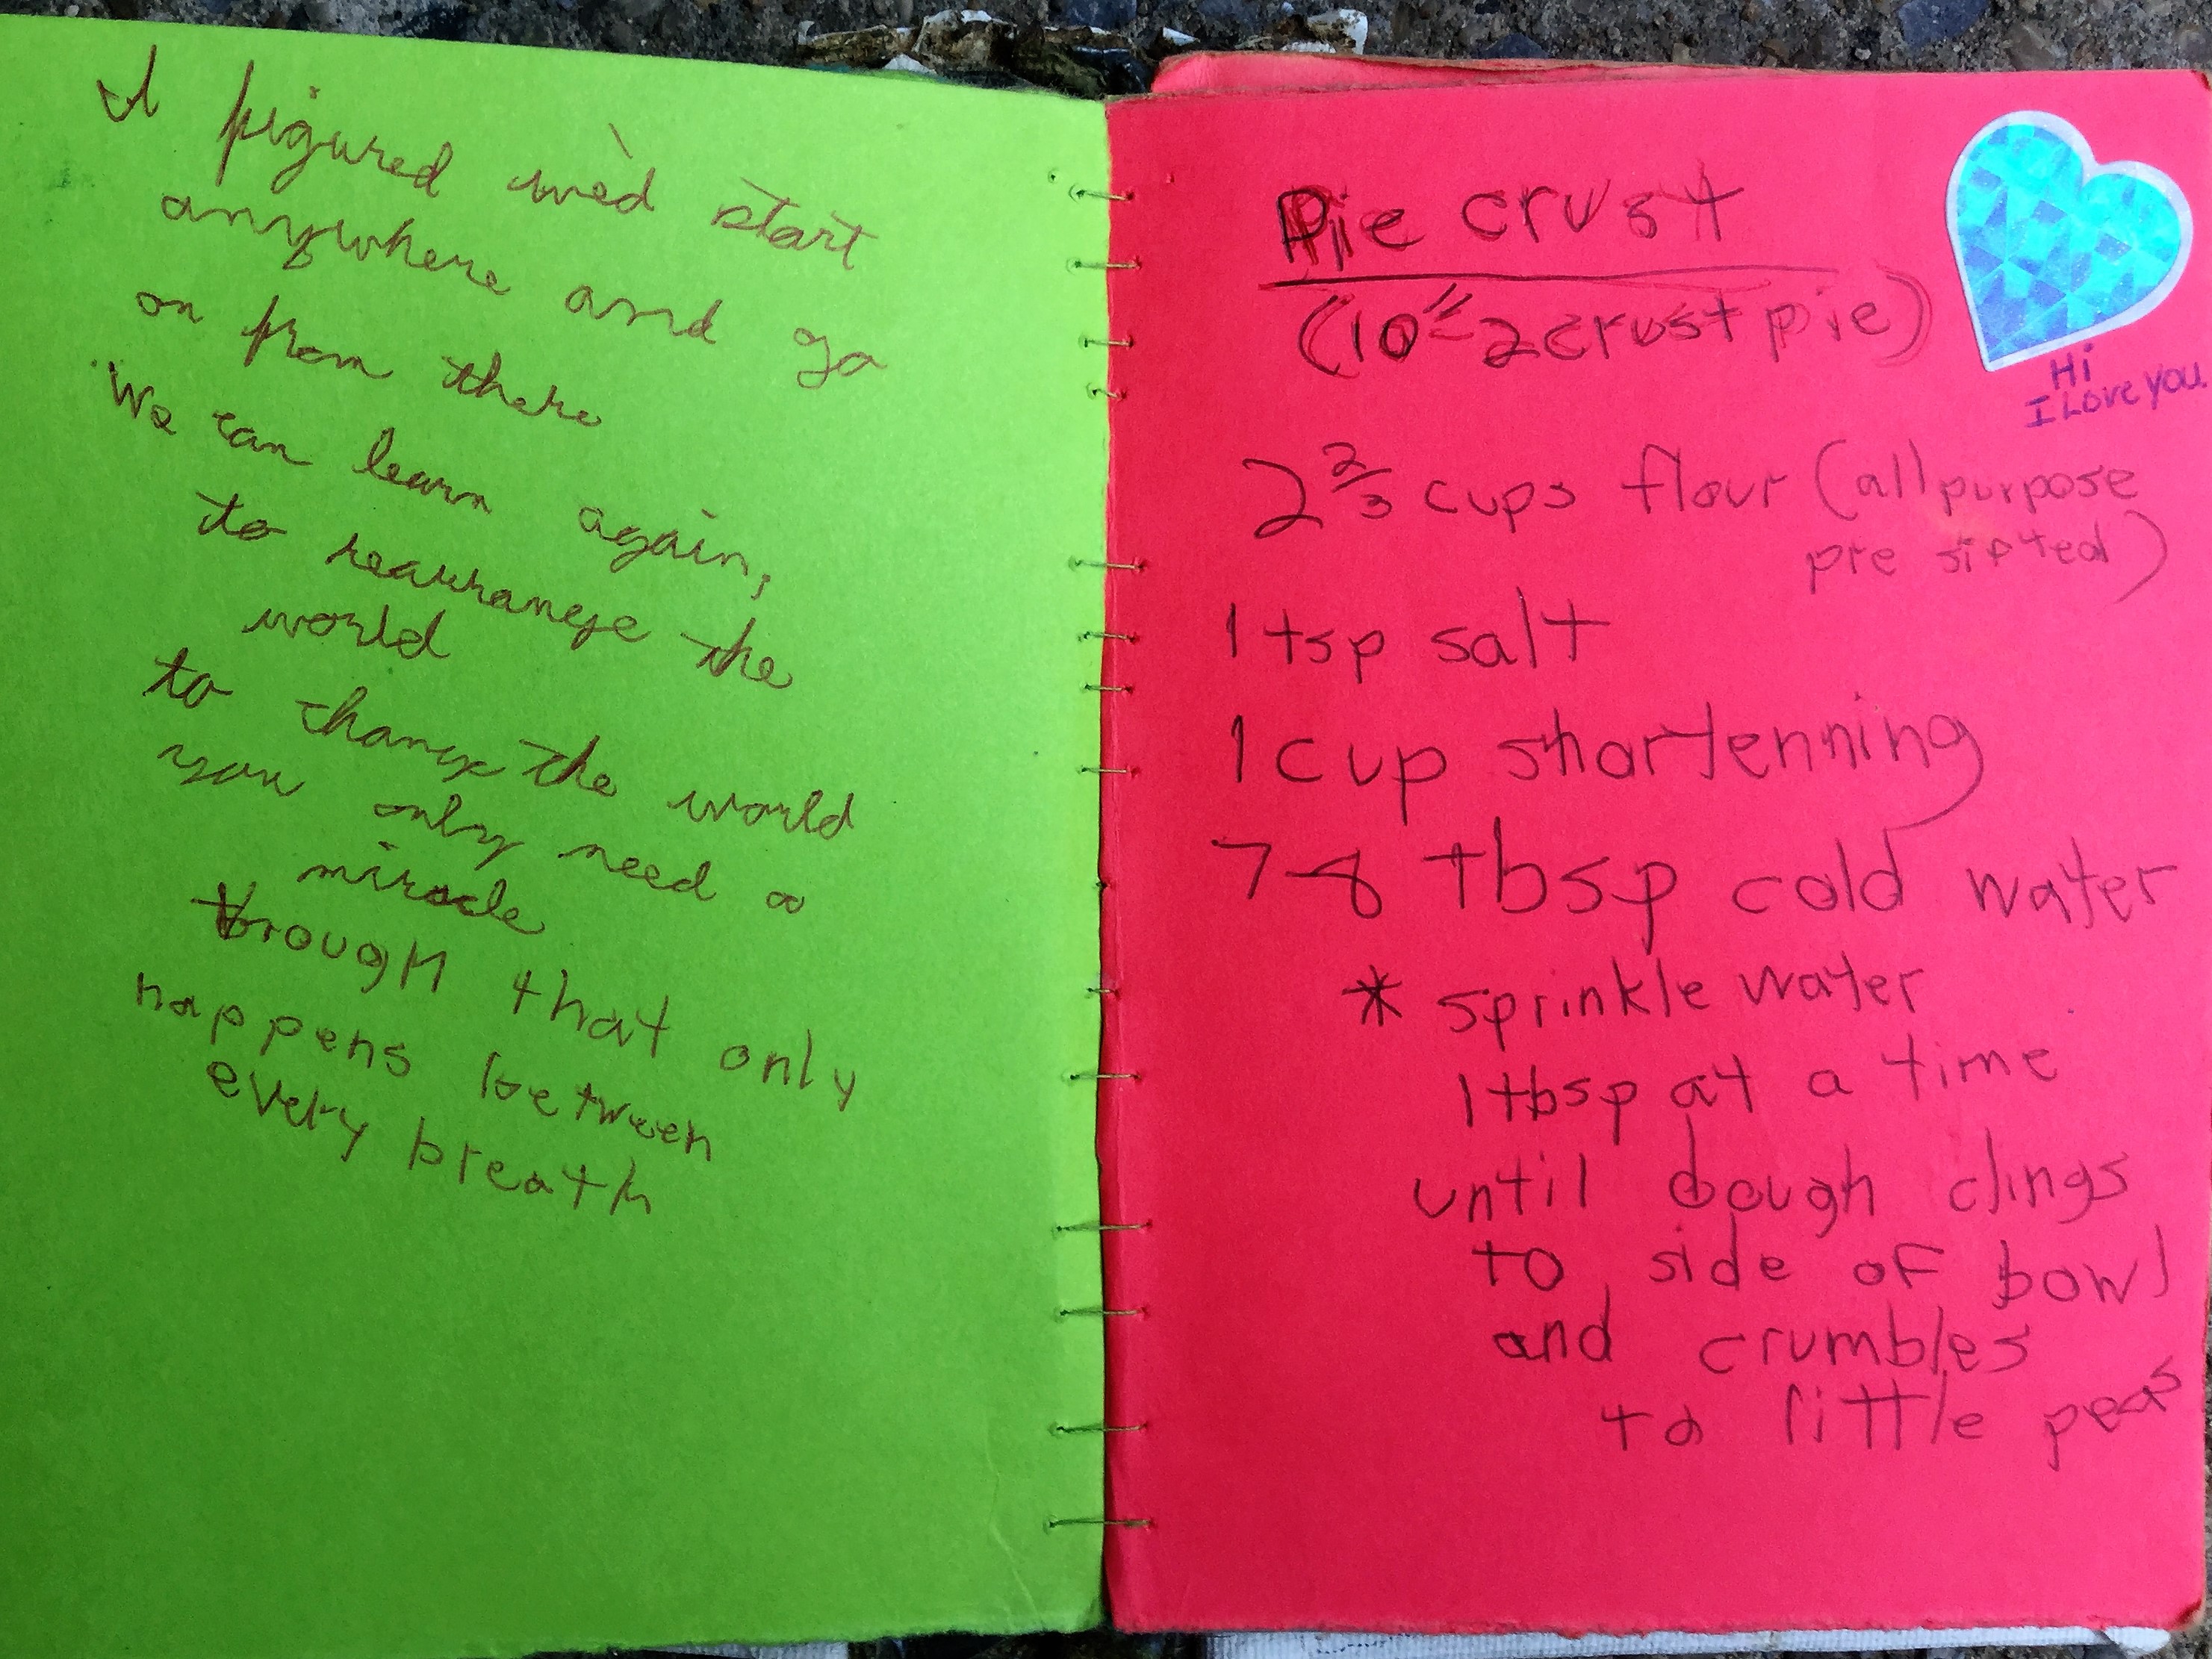 I figured we'd start
anywhere and go
on from there
We can learn again,
to rearrange the
world
to change the world
you only need a
miracle
through that only
happens between
every breath
Pie crust
(10" 2 crust pie)
Hi
I Love you.
2 2/3 cups flour (all purpose
pre sifted)
1 tsp salt
1 cup shortenning
7-8 tbsp cold water
* sprinkle water
1 tbsp at a time
until dough clings
to side of bowl
and crumbles
to little peas